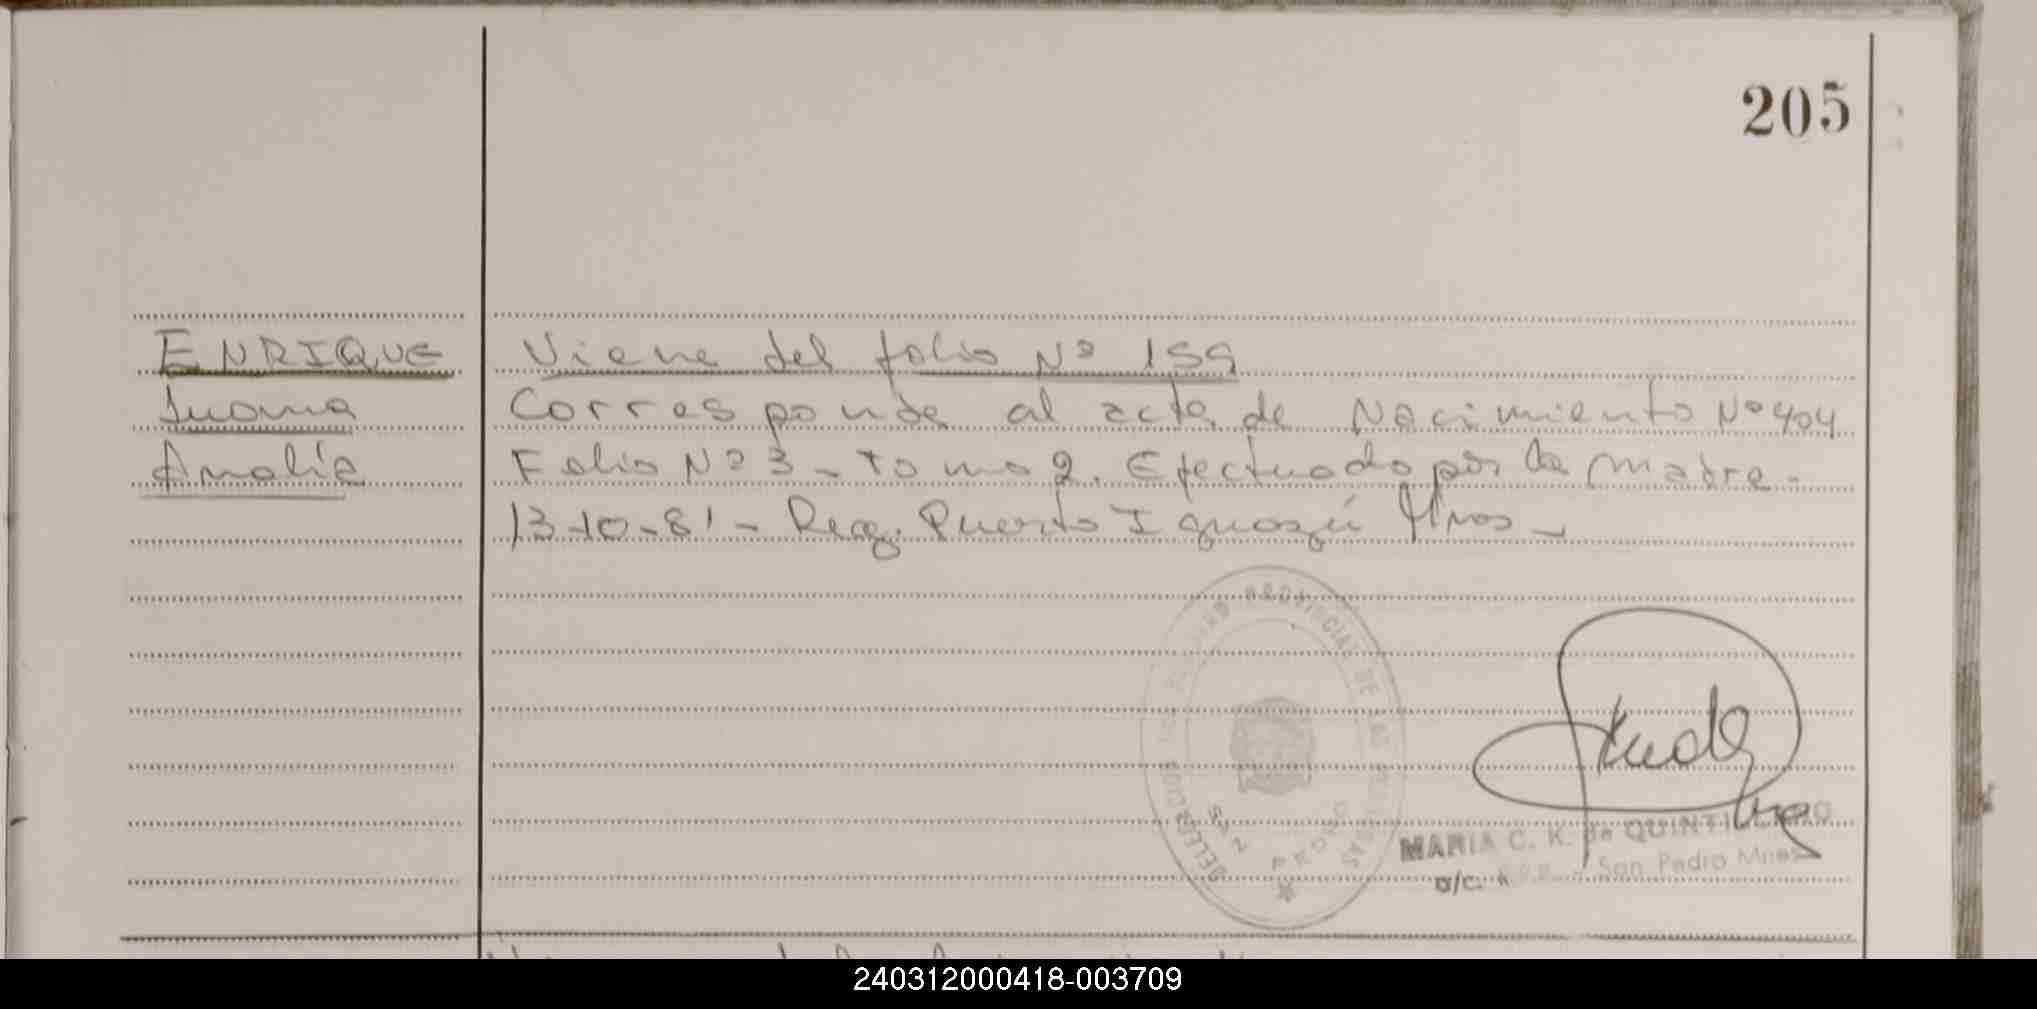 205
ENRIQUE
Juana
Amalia
Viene del folio Nº 159
Corresponde al acta de Nacimiento Nº 404
Folio Nº 3 - Tomo 2. Efectuado por la madre.
13-10-81 - Reg. Puerto Iguazú Mnes -
PROVINCIAL DE LAS
SAN PEDRO
MARIA C. K. de QUINTILIANO
a/c. San Pedro Mnes
240312000418-003709